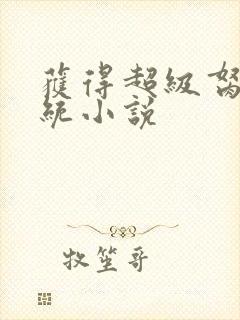 獲得超級
統小說
牧笙哥